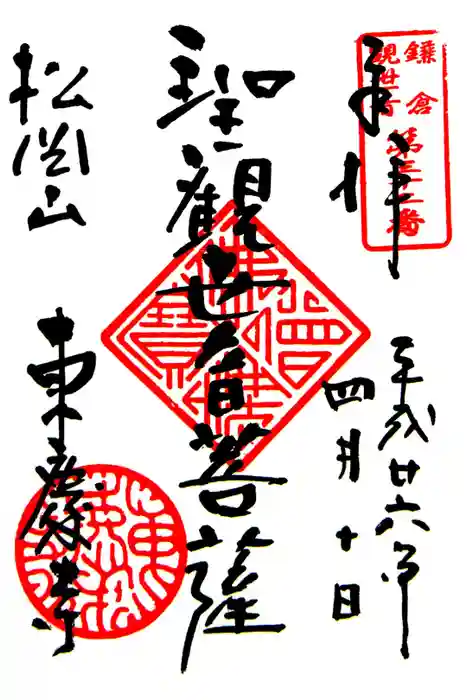 奉拝
鎌倉
観世音
第三十二番
平成廿六年
四月十日
聖観世音菩薩
佛法僧寶
松岡山
東慶寺